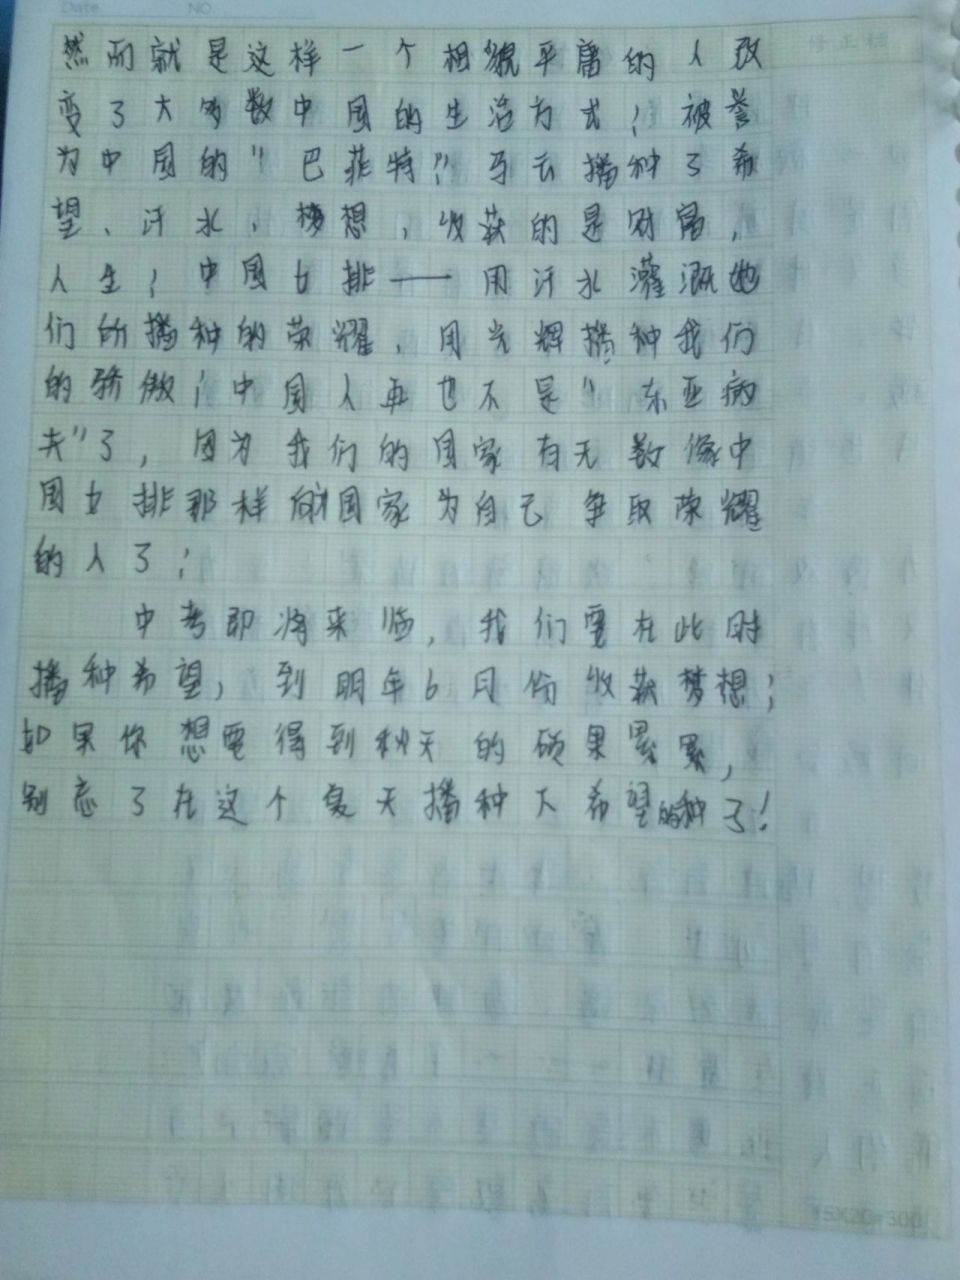 Date NO.
修正栏
然而就是这样一个相貌平庸的人改
变了大多数中国的生活方式；被誉
为中国的“巴菲特”马云播种了希
望、汗水、梦想，收获的是财富，
人生；中国女排——用汗水灌溉她
们所播种的荣耀，用光辉播种我们
的骄傲；中国人再也不是“东亚病
夫”了，因为我们的国家有无数像中
国女排那样的国家为自己争取荣耀
的人了；
中考即将来临，我们要在此时
播种希望，到明年6月份收获梦想；
如果你想要得到秋天的硕果累累，
别忘了在这个夏天播种下希望的种子！
15X20=300